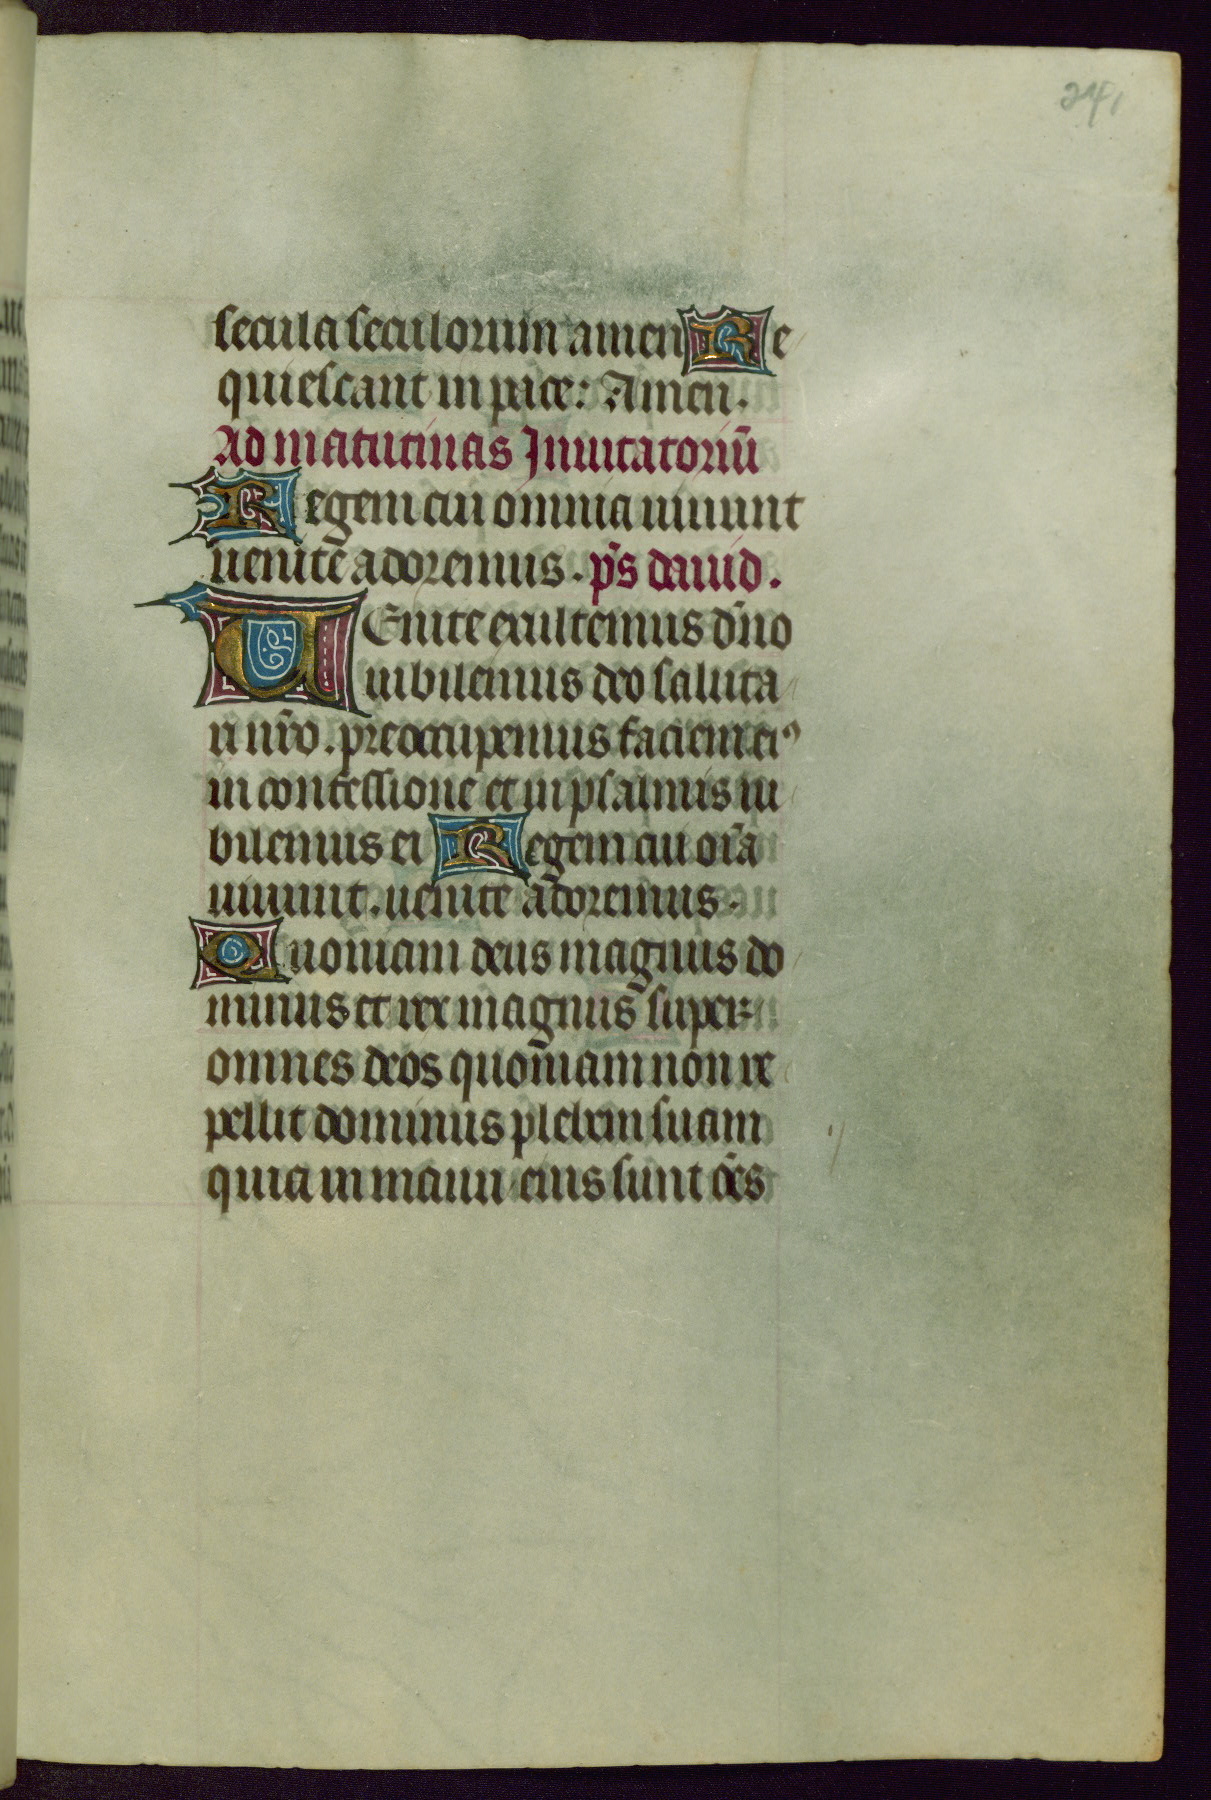 241
secula seculorum amen Re
quiescant in pace: Amen.
Ad matutinas Inuitatoriū
Regem cui omnia uiuunt
uenite adoremus. p̄s dauid.
UEnite exultemus dño
iubilemus deo saluta
ri nr̄o. preoccupemus faciem eiꝰ
in confessione et in psalmis iu
bilemus ei Regem cui oīa
uiuunt. uenite adoremus.
Quoniam deus magnus do
minus et rex magnus super
omnes deos quoniam non re
pellit dominus plebem suam
quia in manu eius sunt oēs